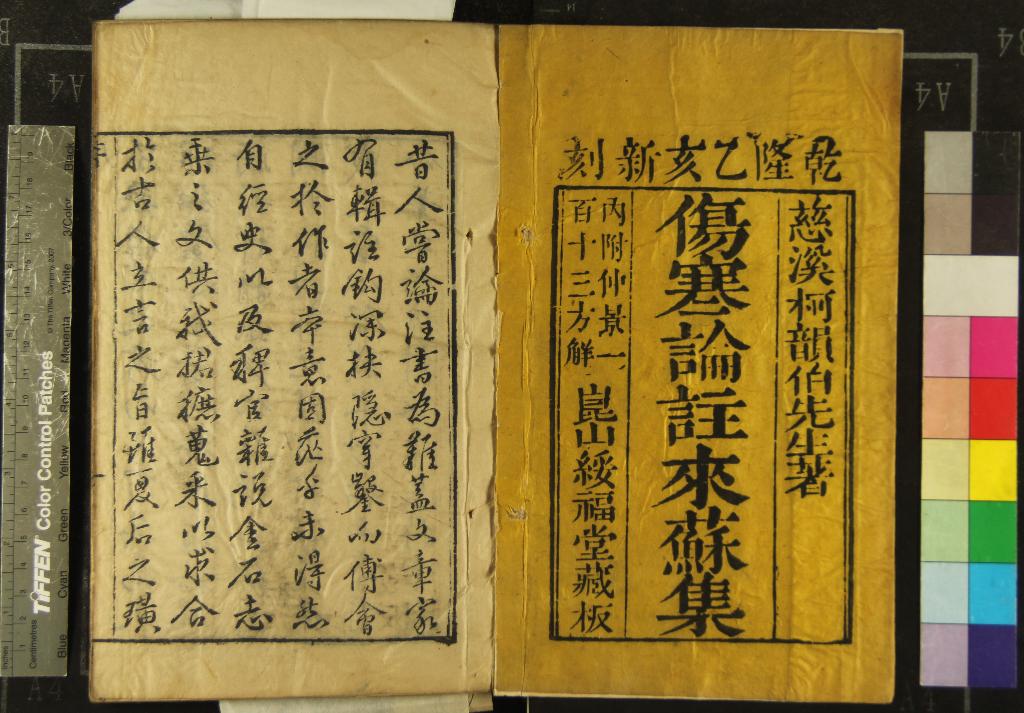 乾隆乙亥新刻
慈溪柯韻伯先生著
傷寒論註來蘇集
内附仲景一
百十三方觧
崑山綏福堂藏板
昔人嘗論注書為難蓋文章家
有輯註鈎深抉隱穿鑿而傅會
之於作者本意固茫乎未得然
自經史以及稗官雜說金石志
乘之文供我捃摭蒐采以求合
於古人立言之旨雖夏后之璜
TIFFEN Color Control Patches
© The Tiffen Company, 2007
Blue Cyan Green Yellow Red Magenta White 3/Color Black
Inches
Centimetres
A4
A4
A4